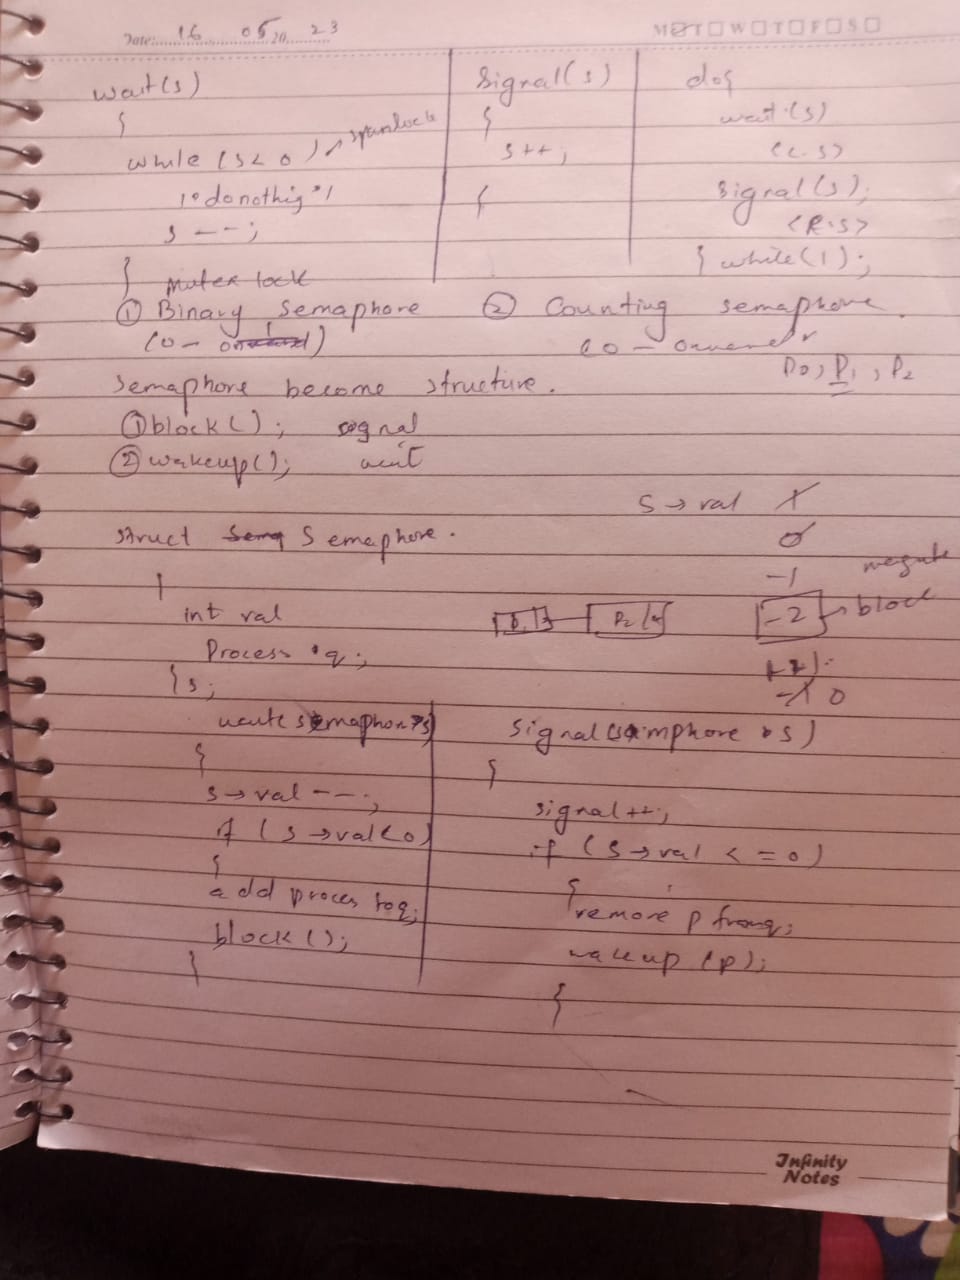 Date: 16 05 20 23
M T W T F S S
wait(s)
{
while (s< 0) → spinlock
/* do nothig */
s --;
}
Signal(s)
{
s++;
{
do{
wait(s)
<C.S>
Signal(s);
<R.S>
} while(1);
mutex lock
① Binary Semaphore
(0 - 1)
② Counting semaphore.
P0, P1, P2
Semaphore become structure.
① block(); signal
② wakeup(); wait
S → val 1
0
-1
-2 → block
-1 0
struct Semaphore.
{
int val
Process *q;
} s;
P2
wait(semaphor *s)
{
s → val --;
if (s → val < 0)
{
add proces to q;
block();
}
Signal(semphore *s)
{
signal ++;
if (s → val <= 0)
{
remove p from q;
wakeup (p);
}
Infinity
Notes